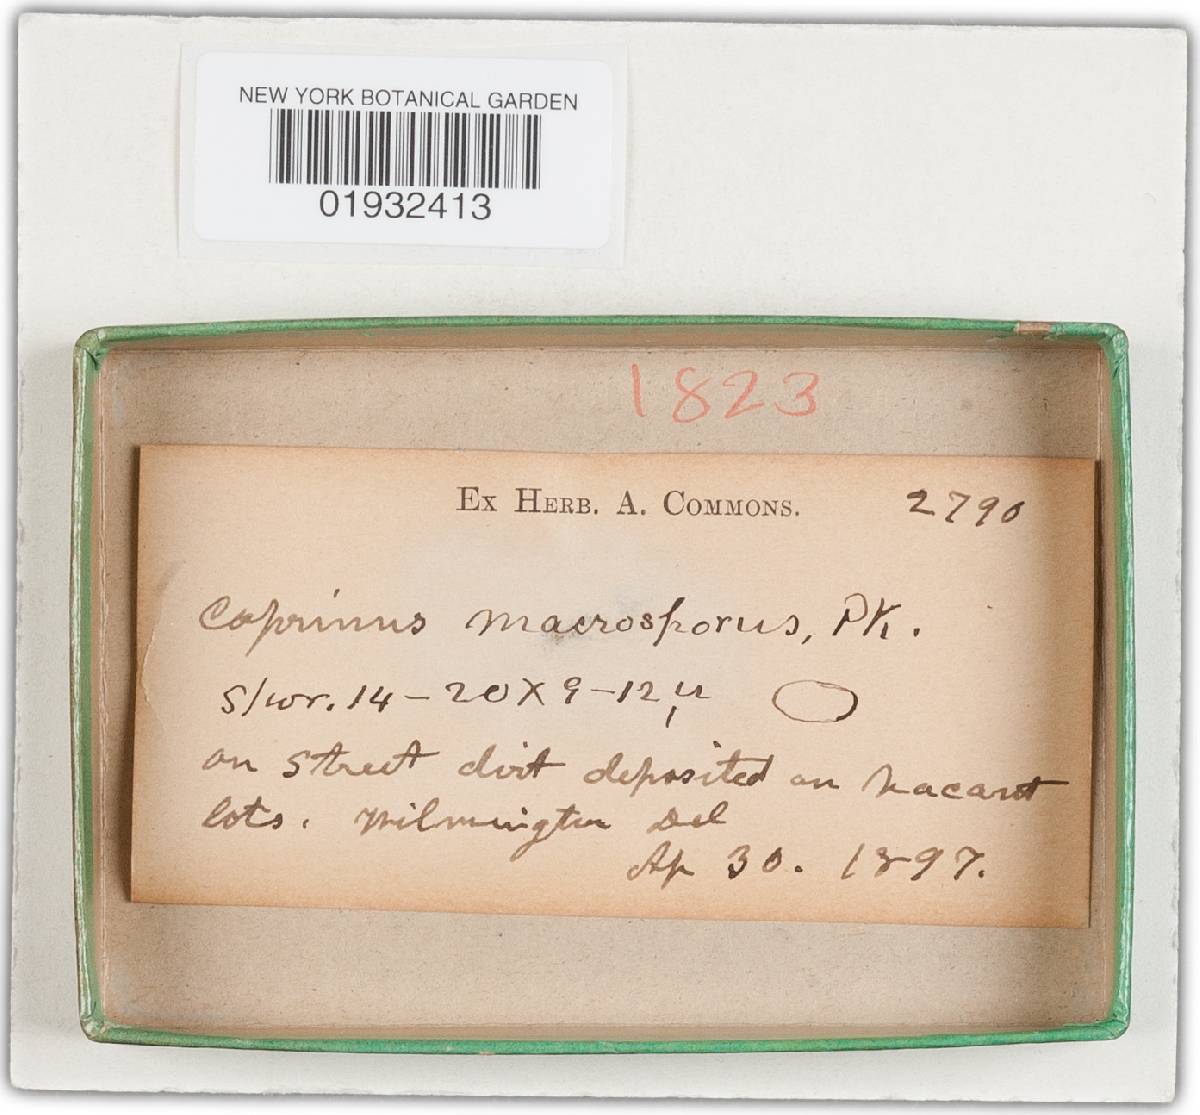 NEW YORK BOTANICAL GARDEN
01932413
1823
EX HERB. A. COMMONS. 2790
Coprinus macrosporus, Pk.
Spor. 14-20X9-12µ
on street dirt deposited on vacant
lots. Wilmington Del
Ap 30. 1897.